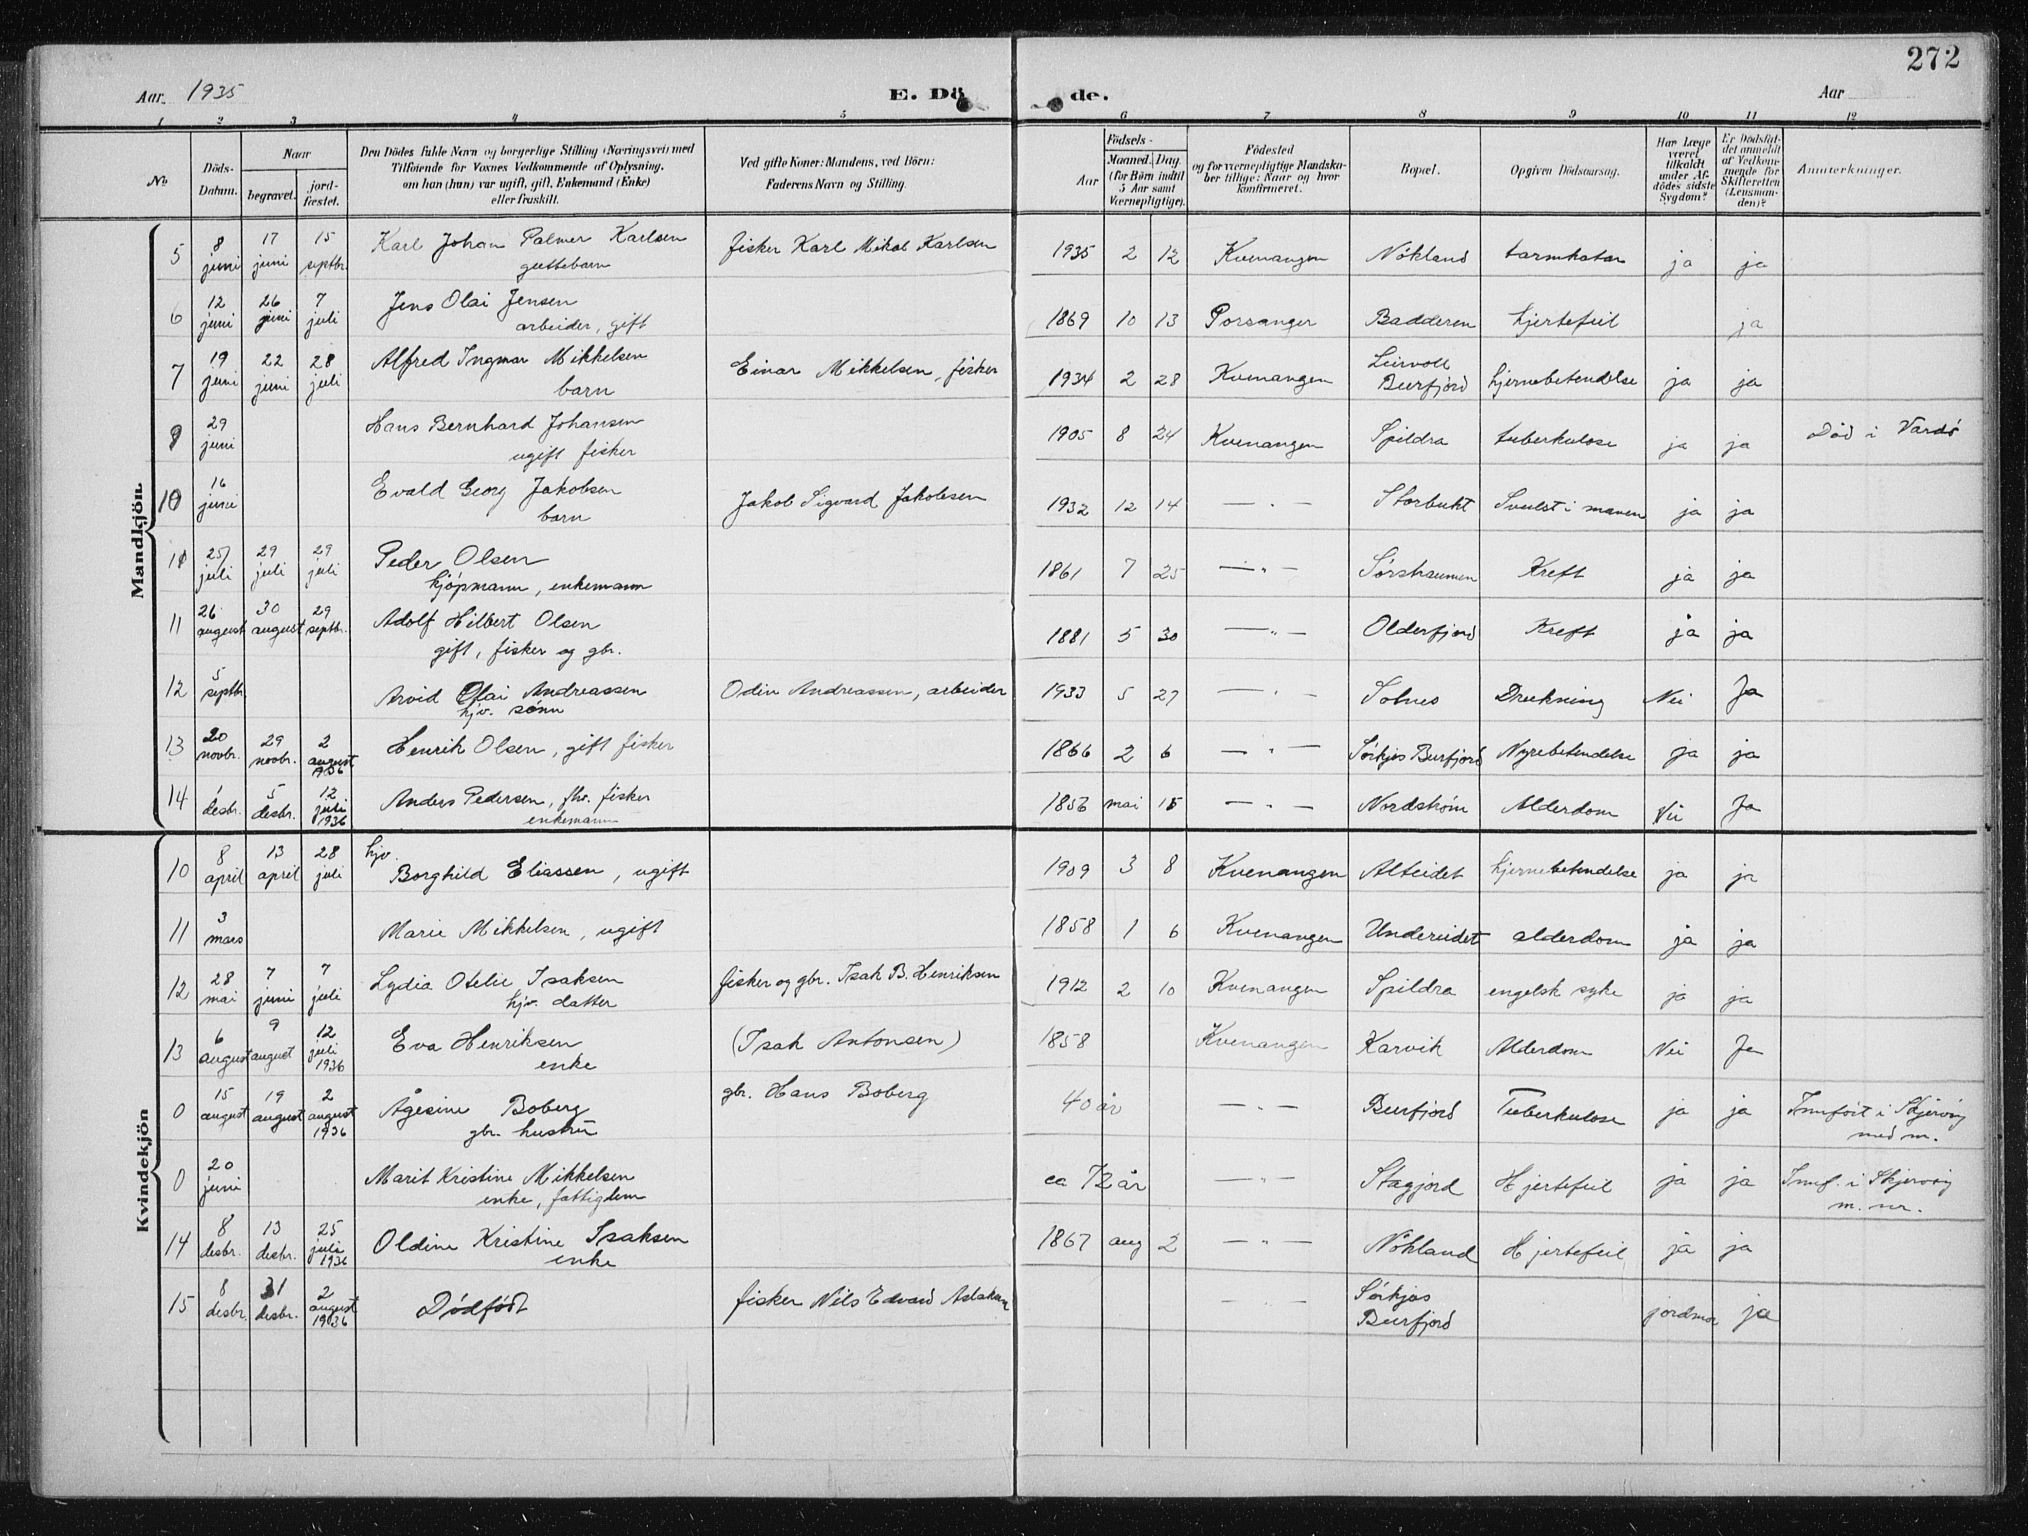 272
Aar 1935 E. Dö de. Aar
1 2 3 4 5 6 7 8 9 10 11 12
No.
Döds-Datum.
Naar
begravet.
jord-fæstet.
Den Dödes fulde Navn og borgerlige Stilling (Næringsvei) med
Tilföiende for Voxnes Vedkommende af Oplysning,
om han (hun) var ugift, gift, Enkemand (Enke)
eller fraskilt.
Ved gifte Koner: Mandens, ved Börn:
Faderens Navn og Stilling.
Födsels-
Aar
Maaned. Dag.
(for Börn indtil
5 Aar samt
Værnepligtige).
Födested
og for værnepligtige Mandska-
ber tillige: Naar og hvor
konfirmeret.
Bopæl.
Opgiven Dödsaarsag.
Har Læge
været
tilkaldt
under Af-
dödes sidste
Sygdom?
Er Dödsfal-
det anmeldt
af Vedkom-
mende for
Skifteretten
(Lensman-
den)?
Anmærkninger.
Mandkjön.
5 8 juni 17 juni 15 septbr. Karl Johan Palmer Karlsen fisker Karl Mikal Karlsen 1935 2 12 Kvenangen Nökland tarmkatar ja ja
guttebarn
6 12 juni 26 juni 7 juli Jens Olai Jensen 1869 10 13 Porsanger Badderen hjertefeil ja
arbeider, gift
7 19 juni 22 juni 28 juli Alfred Ingmar Mikkelsen Einar Mikkelsen, fisker 1934 2 28 Kvenangen Leirvoll Burfjord hjernebetendelse ja ja
barn
29 juni Hans Bernhard Johansen 1905 8 24 Kvenangen Spildra tuberkulose ja ja Död i Vardö
ugift fisker
10 16 juni Evald Georg Jakobsen Jakob Sigvard Jakobsen 1932 12 14 — „ — Storbukt Svulst i maven ja ja
barn
25 juli 29 juli 29 juli Peder Olsen 1861 7 25 — „ — Sörstraumen Kreft ja ja
kjöpmann, enkemann
11 26 august 30 august 29 septbr. Adolf Hilbert Olsen 1881 5 30 — „ — Olderfjord Kreft ja ja
gift, fisker og gbr.
12 5 septbr. Arvid Olai Andreassen Odin Andreassen, arbeider 1933 5 27 — „ — Solnes Drukning Nei Ja
hjv. sönn
13 20 novbr. 29 novbr. 2 august 1936 Henrik Olsen, gift fisker 1866 2 6 — „ — Sörkjos Burfjord Nyrebetendelse ja ja
14 1 desbr. 5 desbr. 12 juli 1936 Anders Pedersen, fhv. fisker mai 15 — „ — Alderdom Nei Ja
enkemann
Kvindekjön
10 8 april 13 april 28 juli hjv. Borghild Eliassen, ugift 1909 3 8 Kvenangen Alteidet hjernebetendelse ja ja
11 3 mars Marie Mikkelsen, ugift 1858 1 6 Kvenangen Undereidet alderdom ja ja
12 28 mai 7 juni 7 juli Lydia Otelie Isaksen fisker og gbr. Isak B. Henriksen 1912 2 10 Kvenangen Spildra engelsk syke ja ja
hjv. datter
13 6 august 9 august 12 juli 1936 Eva Henriksen (Isak Antonsen) 1858 Kvenangen Karvik Alderdom Nei Ja
enke
0 15 august 19 august 2 august 1936 Ågesine Boberg gbr. Hans Boberg 40 år — „ — Burfjord Tuberkulose ja ja Innfört i Skjervöy
gbr. hustru med nr.
0 20 juni Marit Kristine Mikkelsen ca 72 år — „ — Hjertefeil ja ja Innf. i Skjervöy
enke, fattiglem m. nr.
14 8 desbr. 13 desbr. 25 juli 1936 Oldine Kristine Isaksen 1867 aug 2 — „ — Nökland Hjertefeil ja ja
enke
15 8 desbr. 31 desbr. 2 august 1936 Dödfödt fisker Nils Edvard Aslaksen — „ — Sörkjos Burfjord jordmor ja